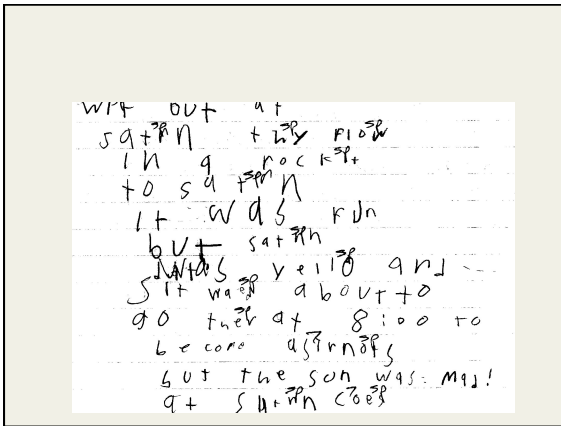 out at
satrn thy flow
in a rockt
to satrn
it was fun
but satrn
was yello and
it was about to
go ther at 8:00 to
become astrnots
but the sun was mad!
at satrn